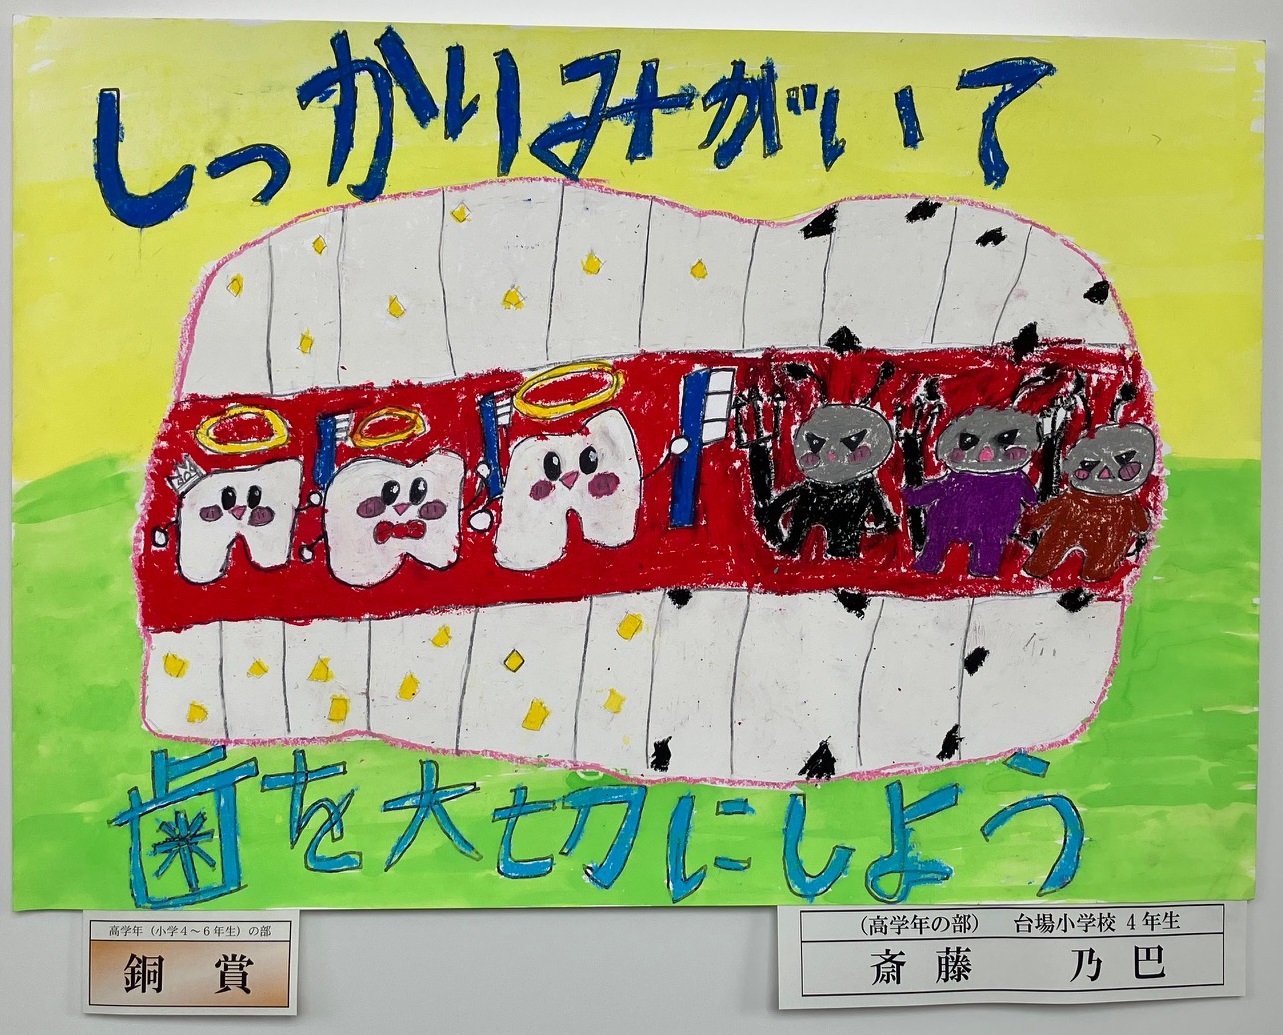 しっかりみがいて
歯を大切にしよう
高学年（小学４～６年生）の部
銅賞
（高学年の部）　台場小学校 ４年生
斎藤　乃巴